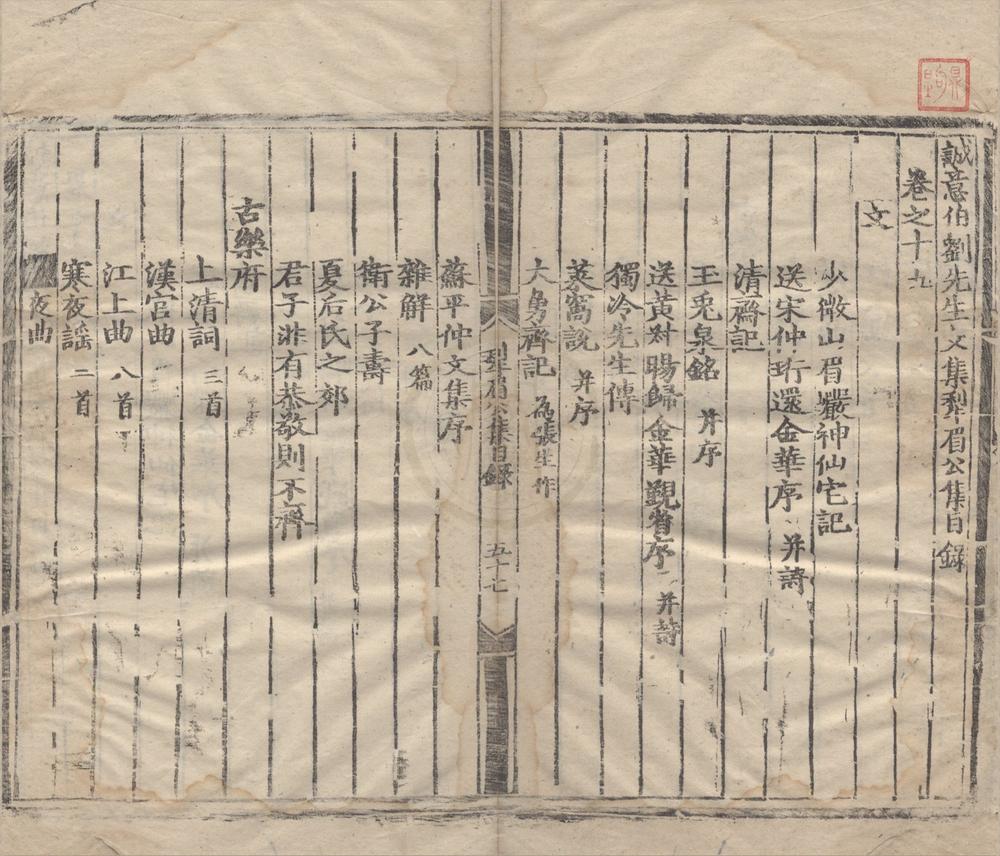 誠意伯劉先生文集犁眉公集目錄
卷之十九
文
少微山眉巖神仙宅記
送宋仲珩還金華序 并詩
清齋記
玉兎泉銘 并序
送黃叔暘歸金華覲省序 并詩
獨冷先生傳
菜窩說 并序
大勇齊記 為張生作
犁眉公集目錄 五十七
蘇平仲文集序
雜解 八篇
衛公子壽
夏后氏之郊
君子非有恭敬則不齊
古樂府
上清詞 三首
漢宮曲
江上曲 八首
寒夜謠 二首
夜曲